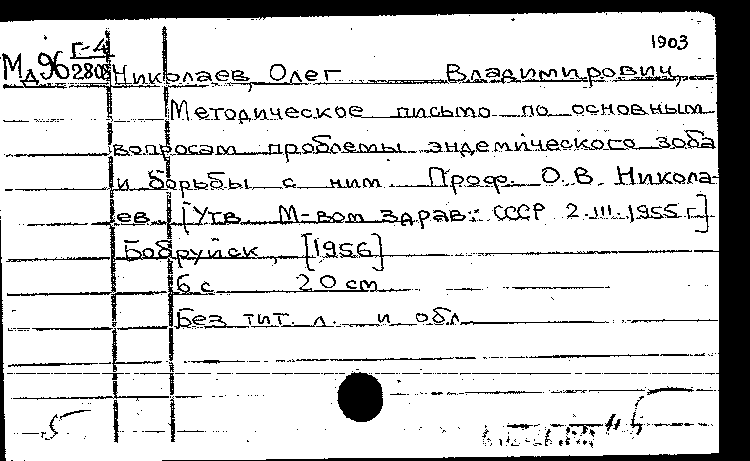 1903
Мд96 Г-4/2808 Николаев, Олег Владимирович,
Методическое письмо по основным
вопросам проблемы эндемического зоба
и борьбы с ним. Проф. О.В. Никола-
ев. [Утв. М-вом здрав. СССР 2.III.1955 г.]
Бобруйск, [1956]
6 с. 20 см.
Без тит. л. и обл.
5